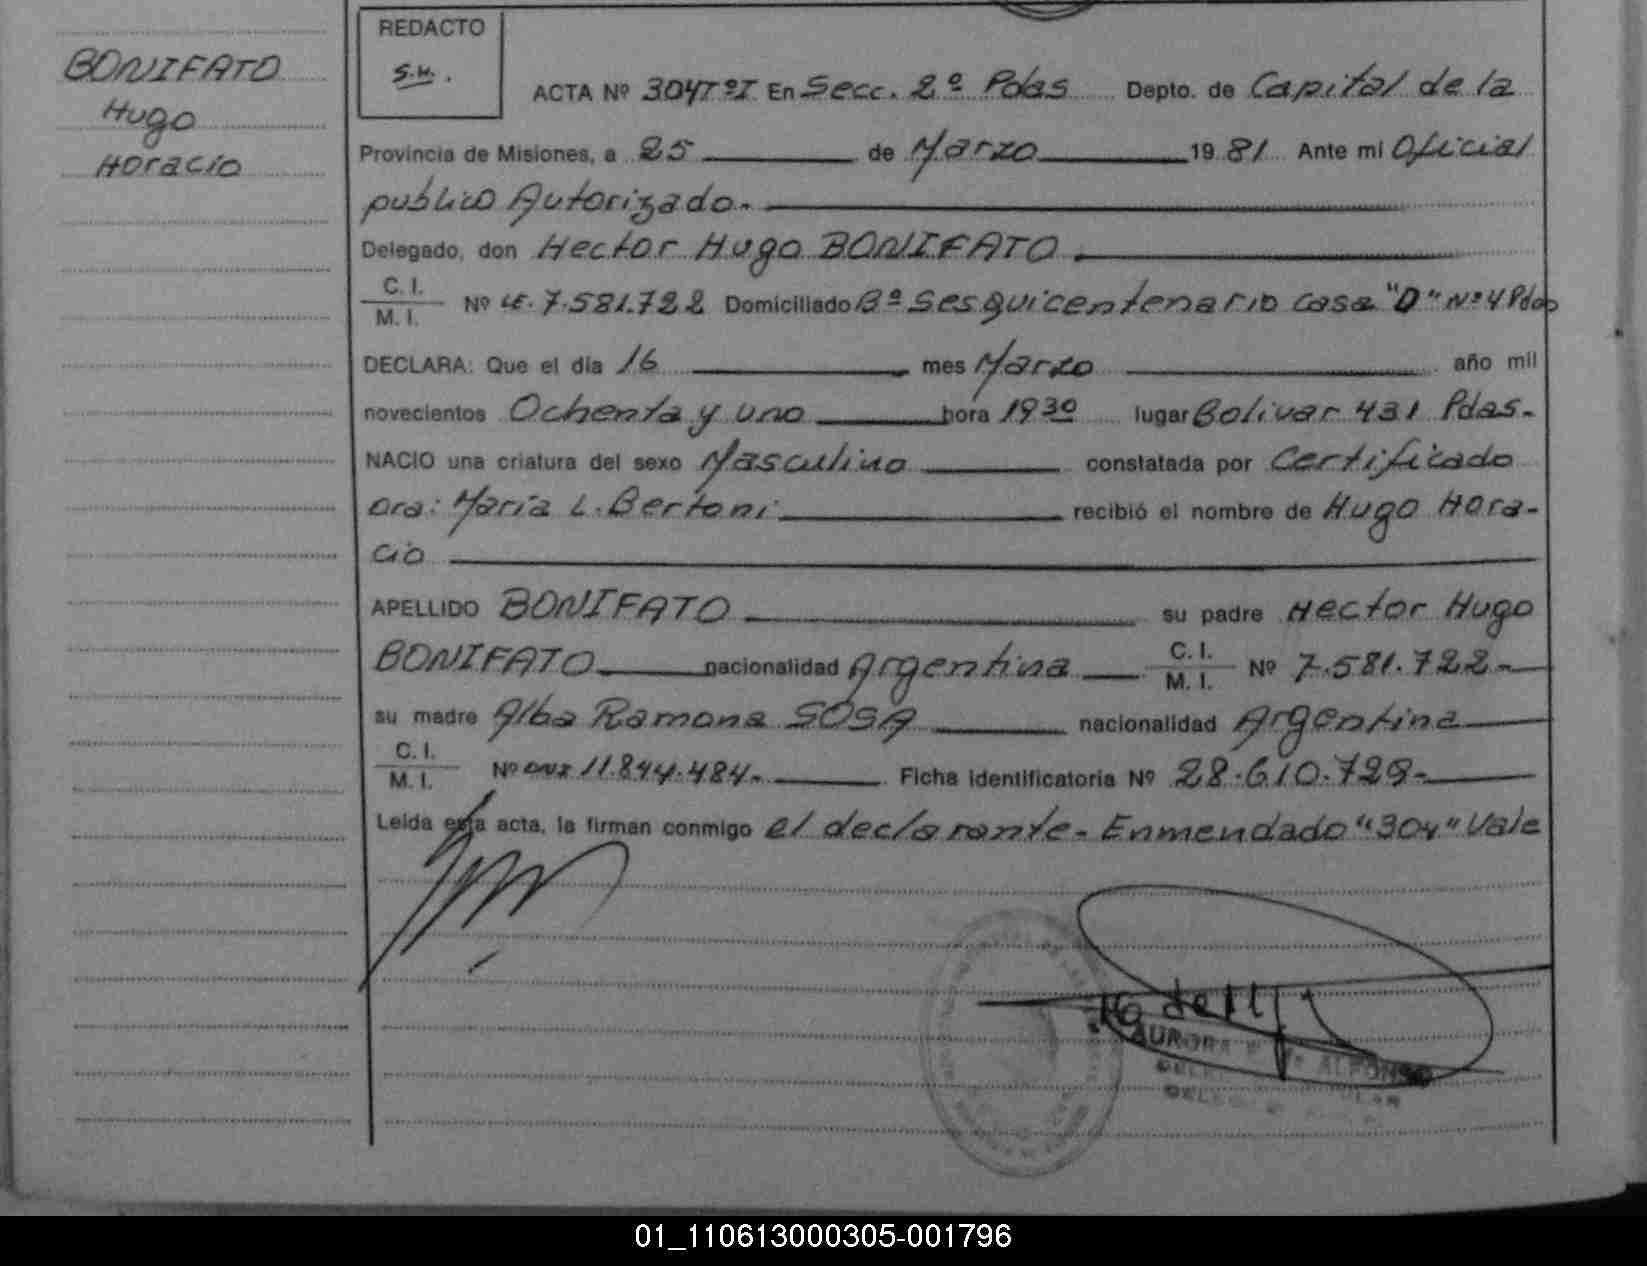 BONIFATO
Hugo
Horacio
REDACTO
S.H.
ACTA Nº 304TºI En Secc. 2º Pdas Depto. de Capital de la
Provincia de Misiones, a 25 de Marzo 19 81 Ante mi Oficial
publico Autorizado.
Delegado, don Hector Hugo BONIFATO
C. I.
M. I.
Nº LE. 7.581.722 Domiciliado Bº Sesquicentenario casa "D" Nº 4 Pdas
DECLARA: Que el día 16 mes Marzo año mil
novecientos Ochenta y uno hora 1930 lugar Bolivar 431 Pdas.
NACIO una criatura del sexo Masculino constatada por Certificado
Dra: María L. Bertoni recibió el nombre de Hugo Hora-
cio
APELLIDO BONIFATO su padre Hector Hugo
BONIFATO nacionalidad Argentina C. I.
M. I. Nº 7.581.722-
su madre Alba Ramona SOSA nacionalidad Argentina
C. I.
M. I.
Nº DNI 11.844.484- Ficha Identificatoria Nº 28.610.729-
Leída esta acta, la firman conmigo el declarante- Enmendado "304" Vale
AURORA ALFONSO
01_110613000305-001796